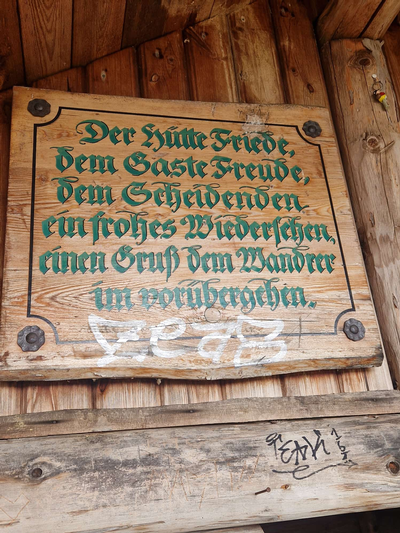 Der Hütte Friede,
dem Gaste Freude,
dem Scheidenden
ein frohes Wiedersehen,
einen Gruß dem Wandrer
im vorübergehen.